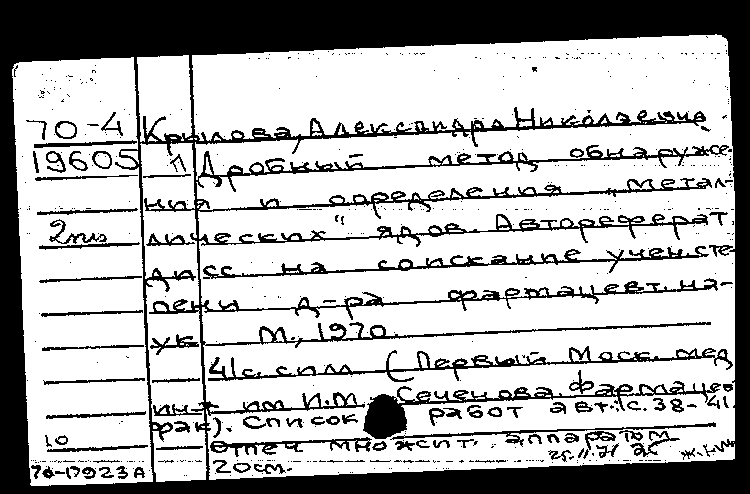 70-4 Крылова, Александра Николаевна.
19605 Дробный метод обнаруже-
ния и определения „метал-
2 лических" ядов. Автореферат
дисс. на соискание учен. сте-
пени д-ра фармацевт. на-
ук. М., 1970.
41 с. с илл. (Первый Моск. мед
ин-т им И.М. Сеченова. Фармацев
фак). Список работ авт.: с. 38-41.
10 Отпеч множит. аппаратом
70-17923А 20см.